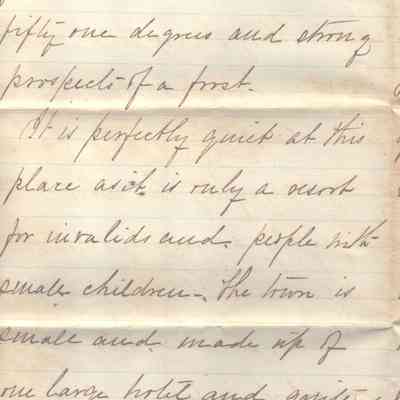 fifty one degrees and strong
prospects of a frost.
It is perfectly quiet at this
place as it is only a resort
for invalids and people with
small children. The town is
small and made up of
one large hotel and quite